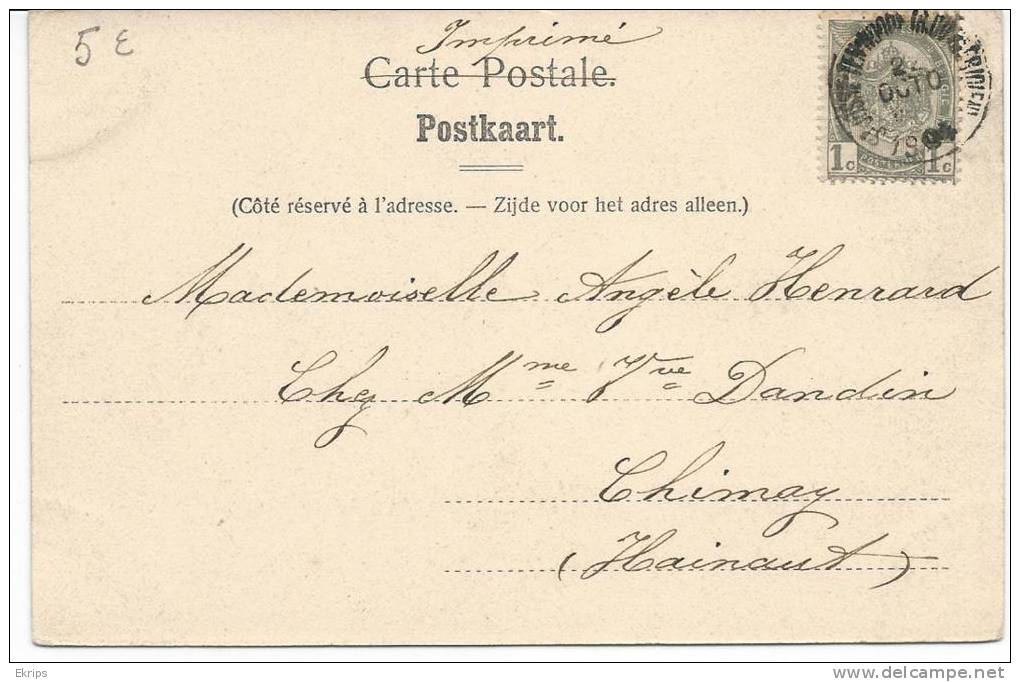 5 €
Imprimé
Carte Postale.
Postkaart.
(Côté réservé à l'adresse. — Zijde voor het adres alleen.)
OCTO
1904
1c 1c
Mademoiselle Angèle Henrard
Chez Mme Vve Dandin
Chimay
(Hainaut)
Ekrips
www.delcampe.net